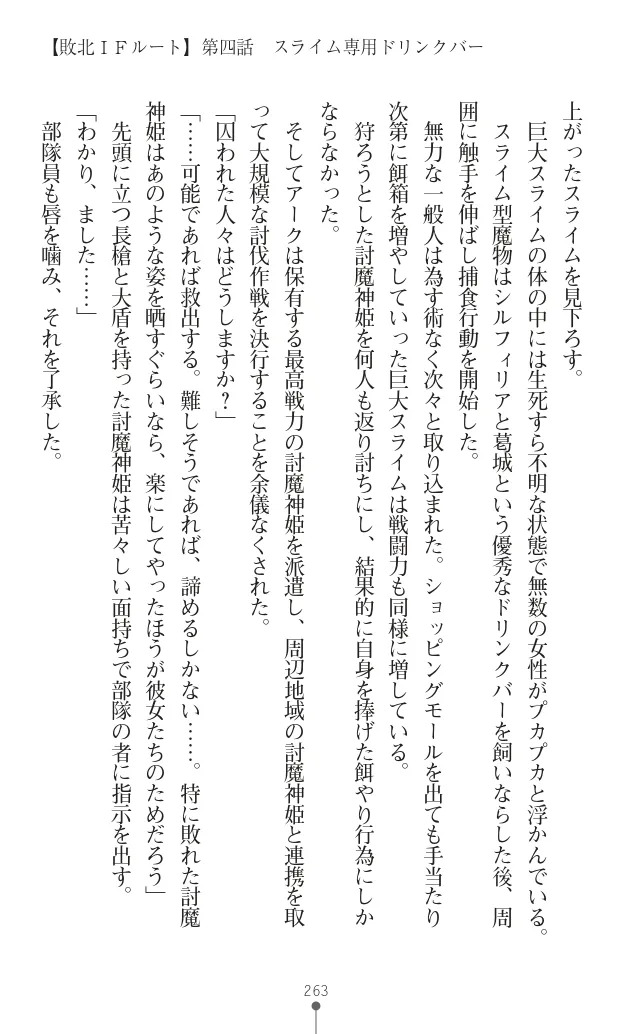 【敗北ＩＦルート】第四話　スライム専用ドリンクバー
上がったスライムを見下ろす。
　巨大スライムの体の中には生死すら不明な状態で無数の女性がプカプカと浮かんでいる。
　スライム型魔物はシルフィリアと葛城という優秀なドリンクバーを飼いならした後、周
囲に触手を伸ばし捕食行動を開始した。
　無力な一般人は為す術なく次々と取り込まれた。ショッピングモールを出ても手当たり
次第に餌箱を増やしていった巨大スライムは戦闘力も同様に増している。
　狩ろうとした討魔神姫を何人も返り討ちにし、結果的に自身を捧げた餌やり行為にしか
ならなかった。
　そしてアークは保有する最高戦力の討魔神姫を派遣し、周辺地域の討魔神姫と連携を取
って大規模な討伐作戦を決行することを余儀なくされた。
「囚われた人々はどうしますか？」
「……可能であれば救出する。難しそうであれば、諦めるしかない……。特に敗れた討魔
神姫はあのような姿を晒すぐらいなら、楽にしてやったほうが彼女たちのためだろう」
　先頭に立つ長槍と大盾を持った討魔神姫は苦々しい面持ちで部隊の者に指示を出す。
「わかり、ました……」
　部隊員も唇を噛み、それを了承した。
263